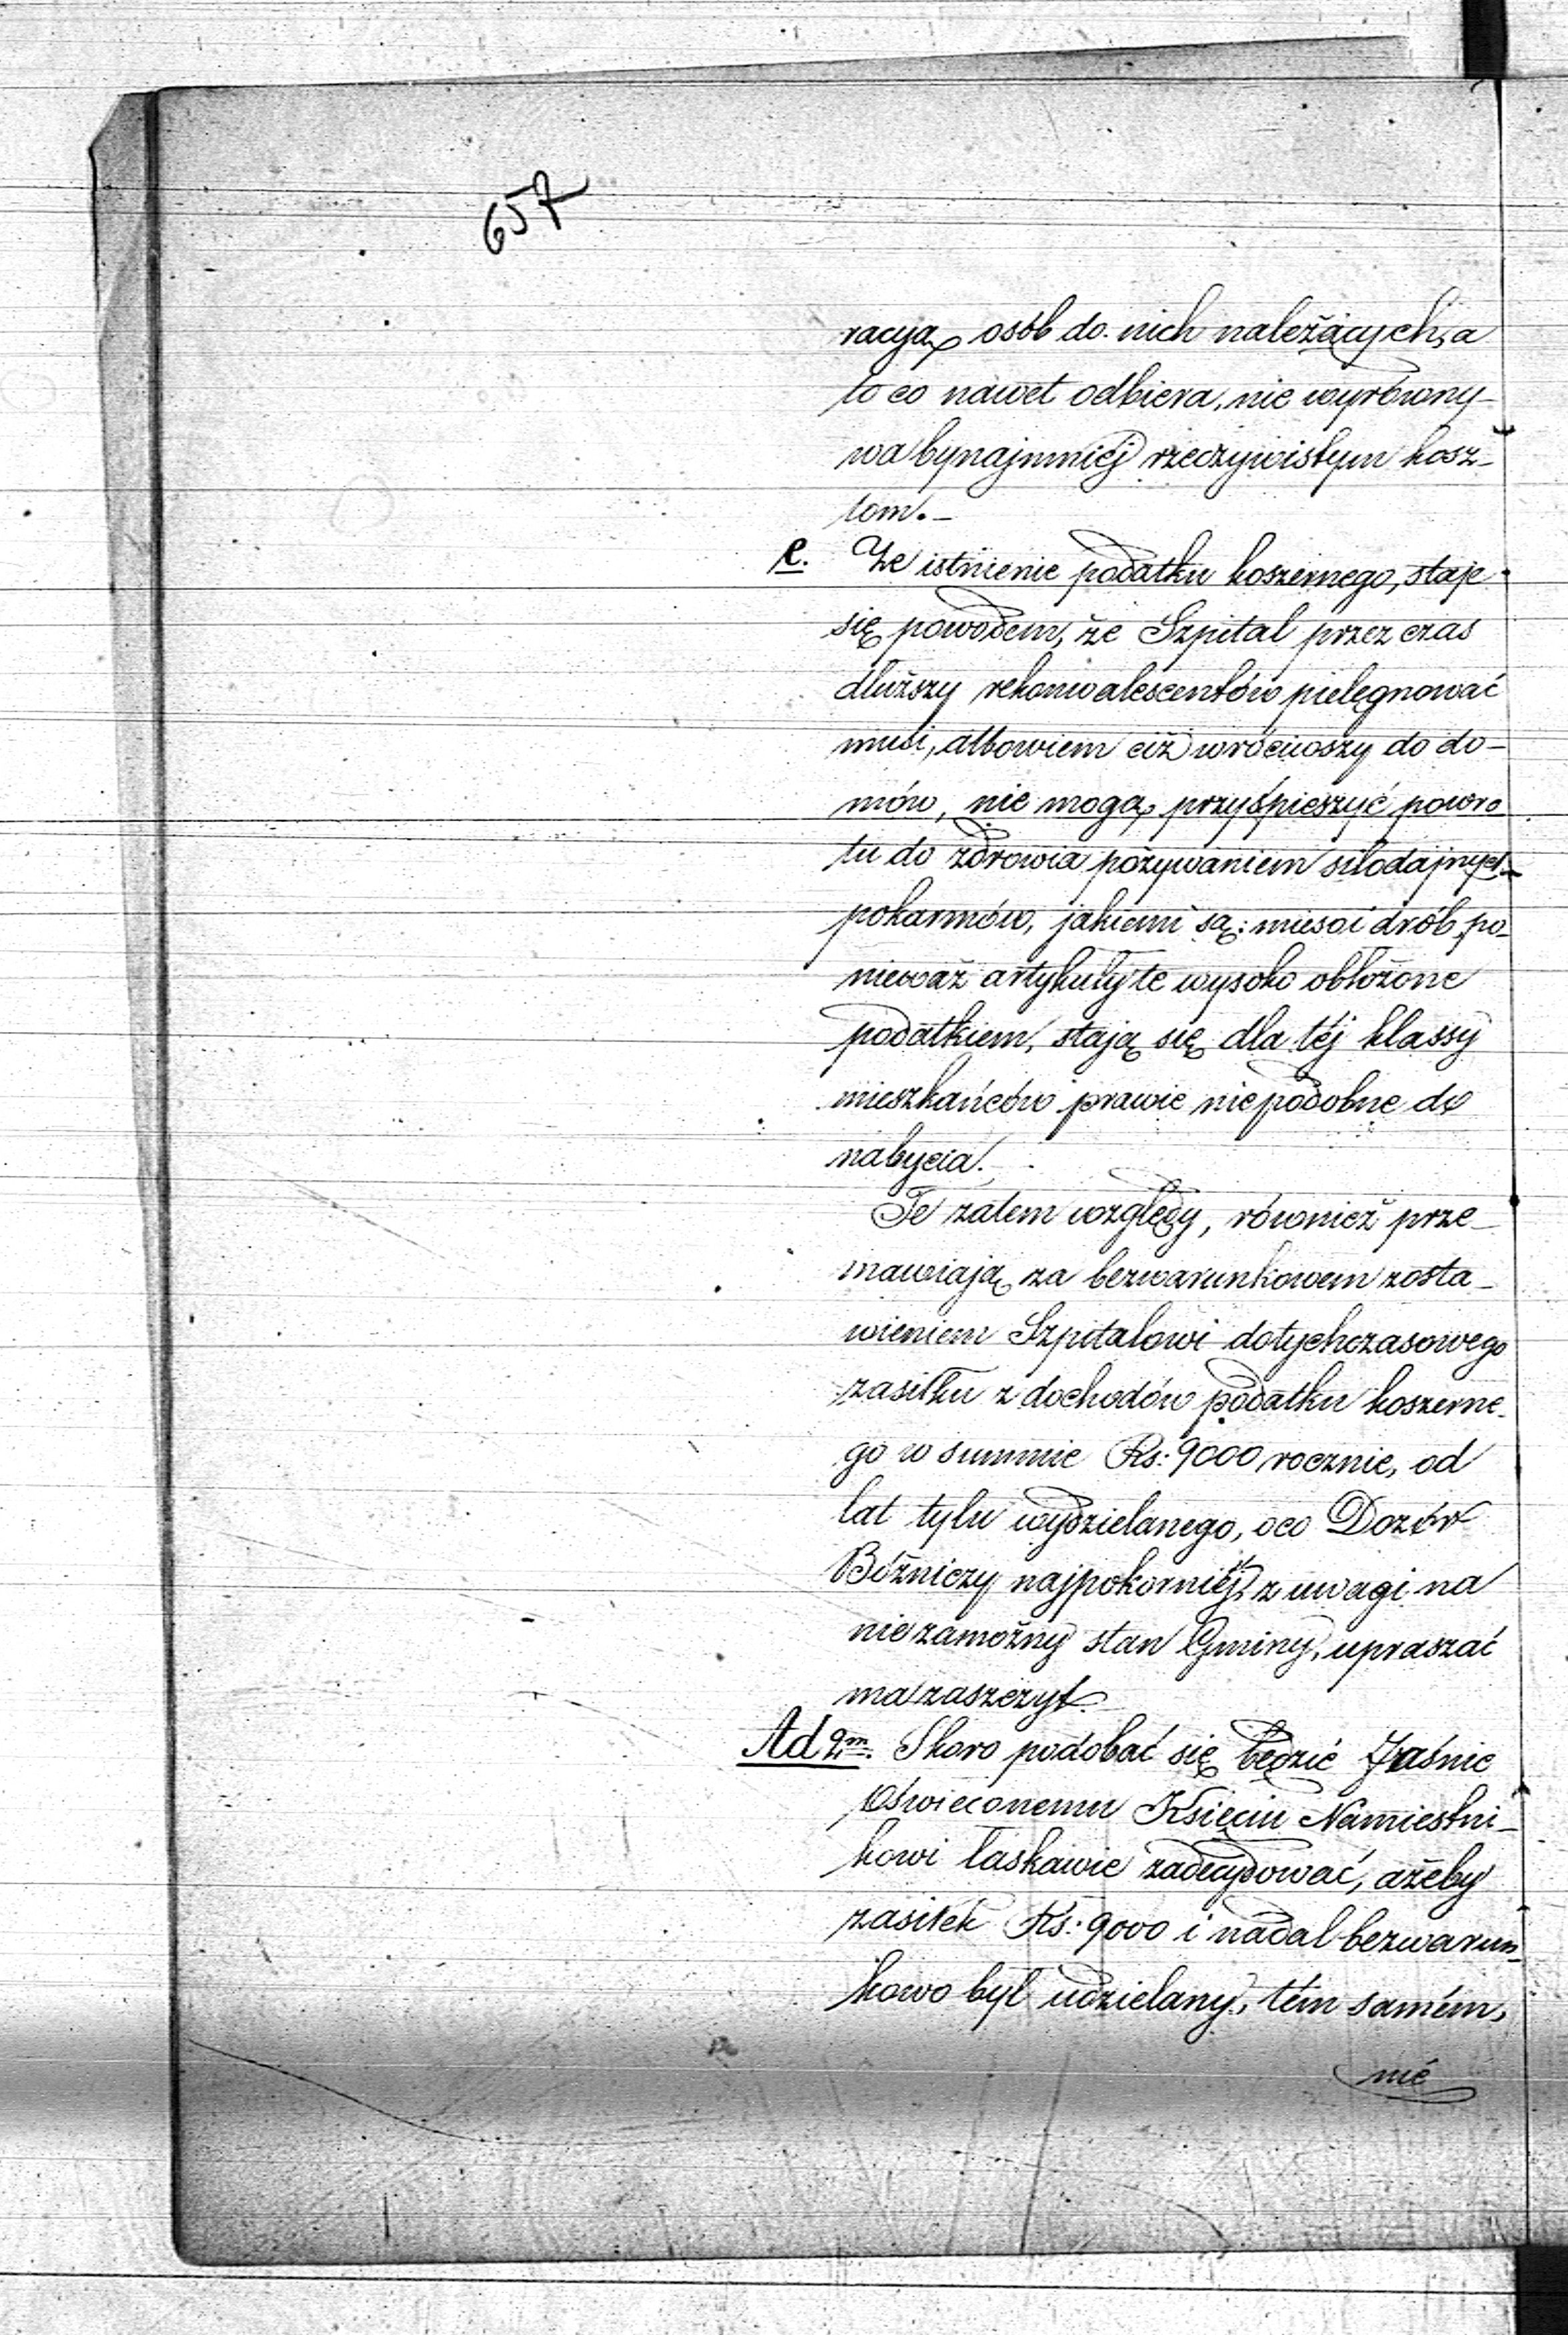 657
racyą osób do nich należących, a
to co nawet odbiera, nie wyrówny-
wa bynajmniéj rzeczywistym kosz-
tom.-
e. Że istnienie podatku koszernego, staje
się powodem, że Szpital przez czas
dłuższy rekonwalescentów pielęgnować
musi, albowiem ciż wróciwszy do do-
mów, nie mogą przyśpieszyć powro
tu do zdrowia pożywaniem siłodajnych
pokarmów, jakiemi są: mięso i drób, po-
nieważ artykuły te wysoko obłożone
podatkiem, stają się dla téj klassy
mieszkańców prawie niepodobne do
nabycia.
Te zatem względy, również prze-
mawiają za bezwarunkowem zosta-
wieniem Szpitalowi dotychczasowego
zasiłku z dochodów podatku koszerne-
go w summie Rs: 9000 rocznie, od
lat tylu wydzielanego, oco Dozór
Bóżniczy najpokorniéj, z uwagi na
niezamożny stan Gminy, upraszać
ma zaszczyt.
Ad 2m. Skoro podobać się będzie Jaśnie
Oświeconemu Księciu Namiestni-
kowi łaskawie zadecydować, ażeby
zasiłek Rs: 9000 i nadal bezwarun-
kowo był udzielany, tém samém,
nie